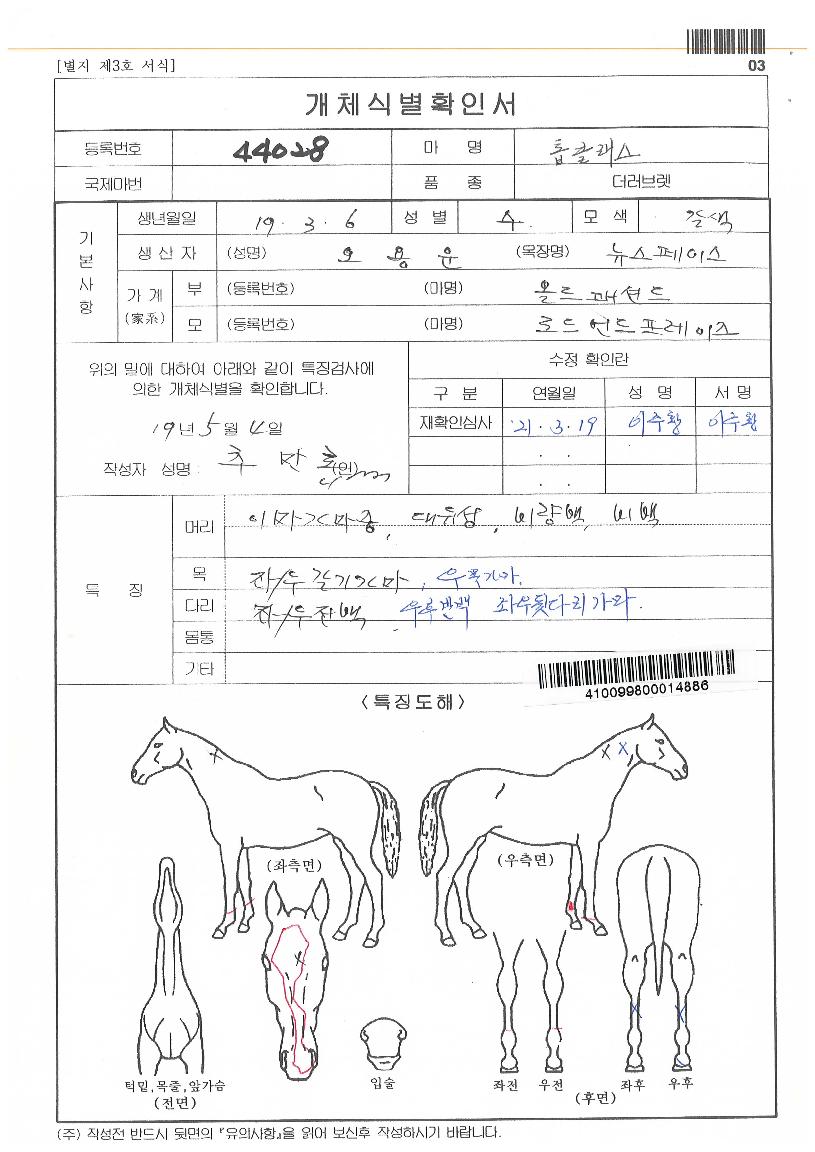 [별지 제3호 서식]
03
개체식별확인서
등록번호 44028 마 명 톱클래스
국제마번 품 종 더러브렛
기본사항
생년월일 19. 3. 6 성 별 수 모 색 갈색
생 산 자 (성명) 오 용 운 (목장명) 뉴스페이스
가 계 (家系)
부 (등록번호) (마명) 올드패션드
모 (등록번호) (마명) 로드앤드프레이즈
위의 말에 대하여 아래와 같이 특징검사에
의한 개체식별을 확인합니다.
19년 5월 4일
작성자 성명 : 추 만 호 (인)
수정 확인란
구 분 연월일 성 명 서 명
재확인심사 '21. 3. 19 이주황 이주황
. .
. .
특 징
머리 이마가마중, 대유성, 비량백, 비백
목 좌/우갈기가마, 우목가마.
다리 좌/우전백 우후반백 좌우뒷다리가마.
몸통
기타
410099800014886
<특징도해>
(좌측면)
(우측면)
턱밑,목줄,앞가슴
(전면)
입술
좌전 우전 좌후 우후
(후면)
(주) 작성전 반드시 뒷면의 『유의사항』을 읽어 보신후 작성하시기 바랍니다.